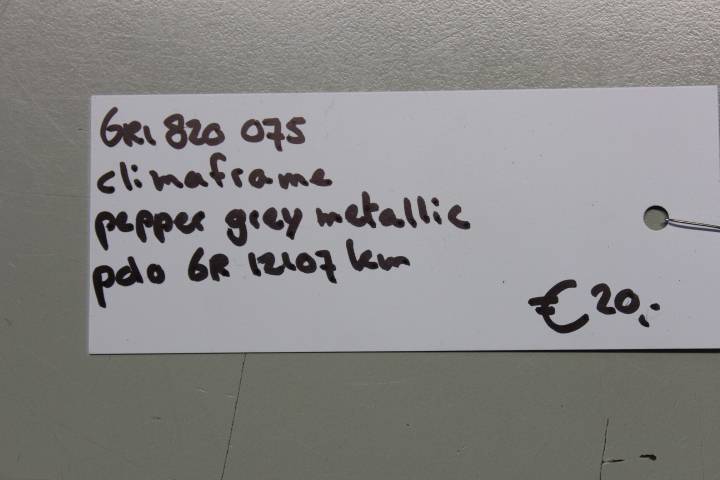 GRI 820 075
climaframe
pepper grey metallic
pdo GR 12107 km
€ 20,-